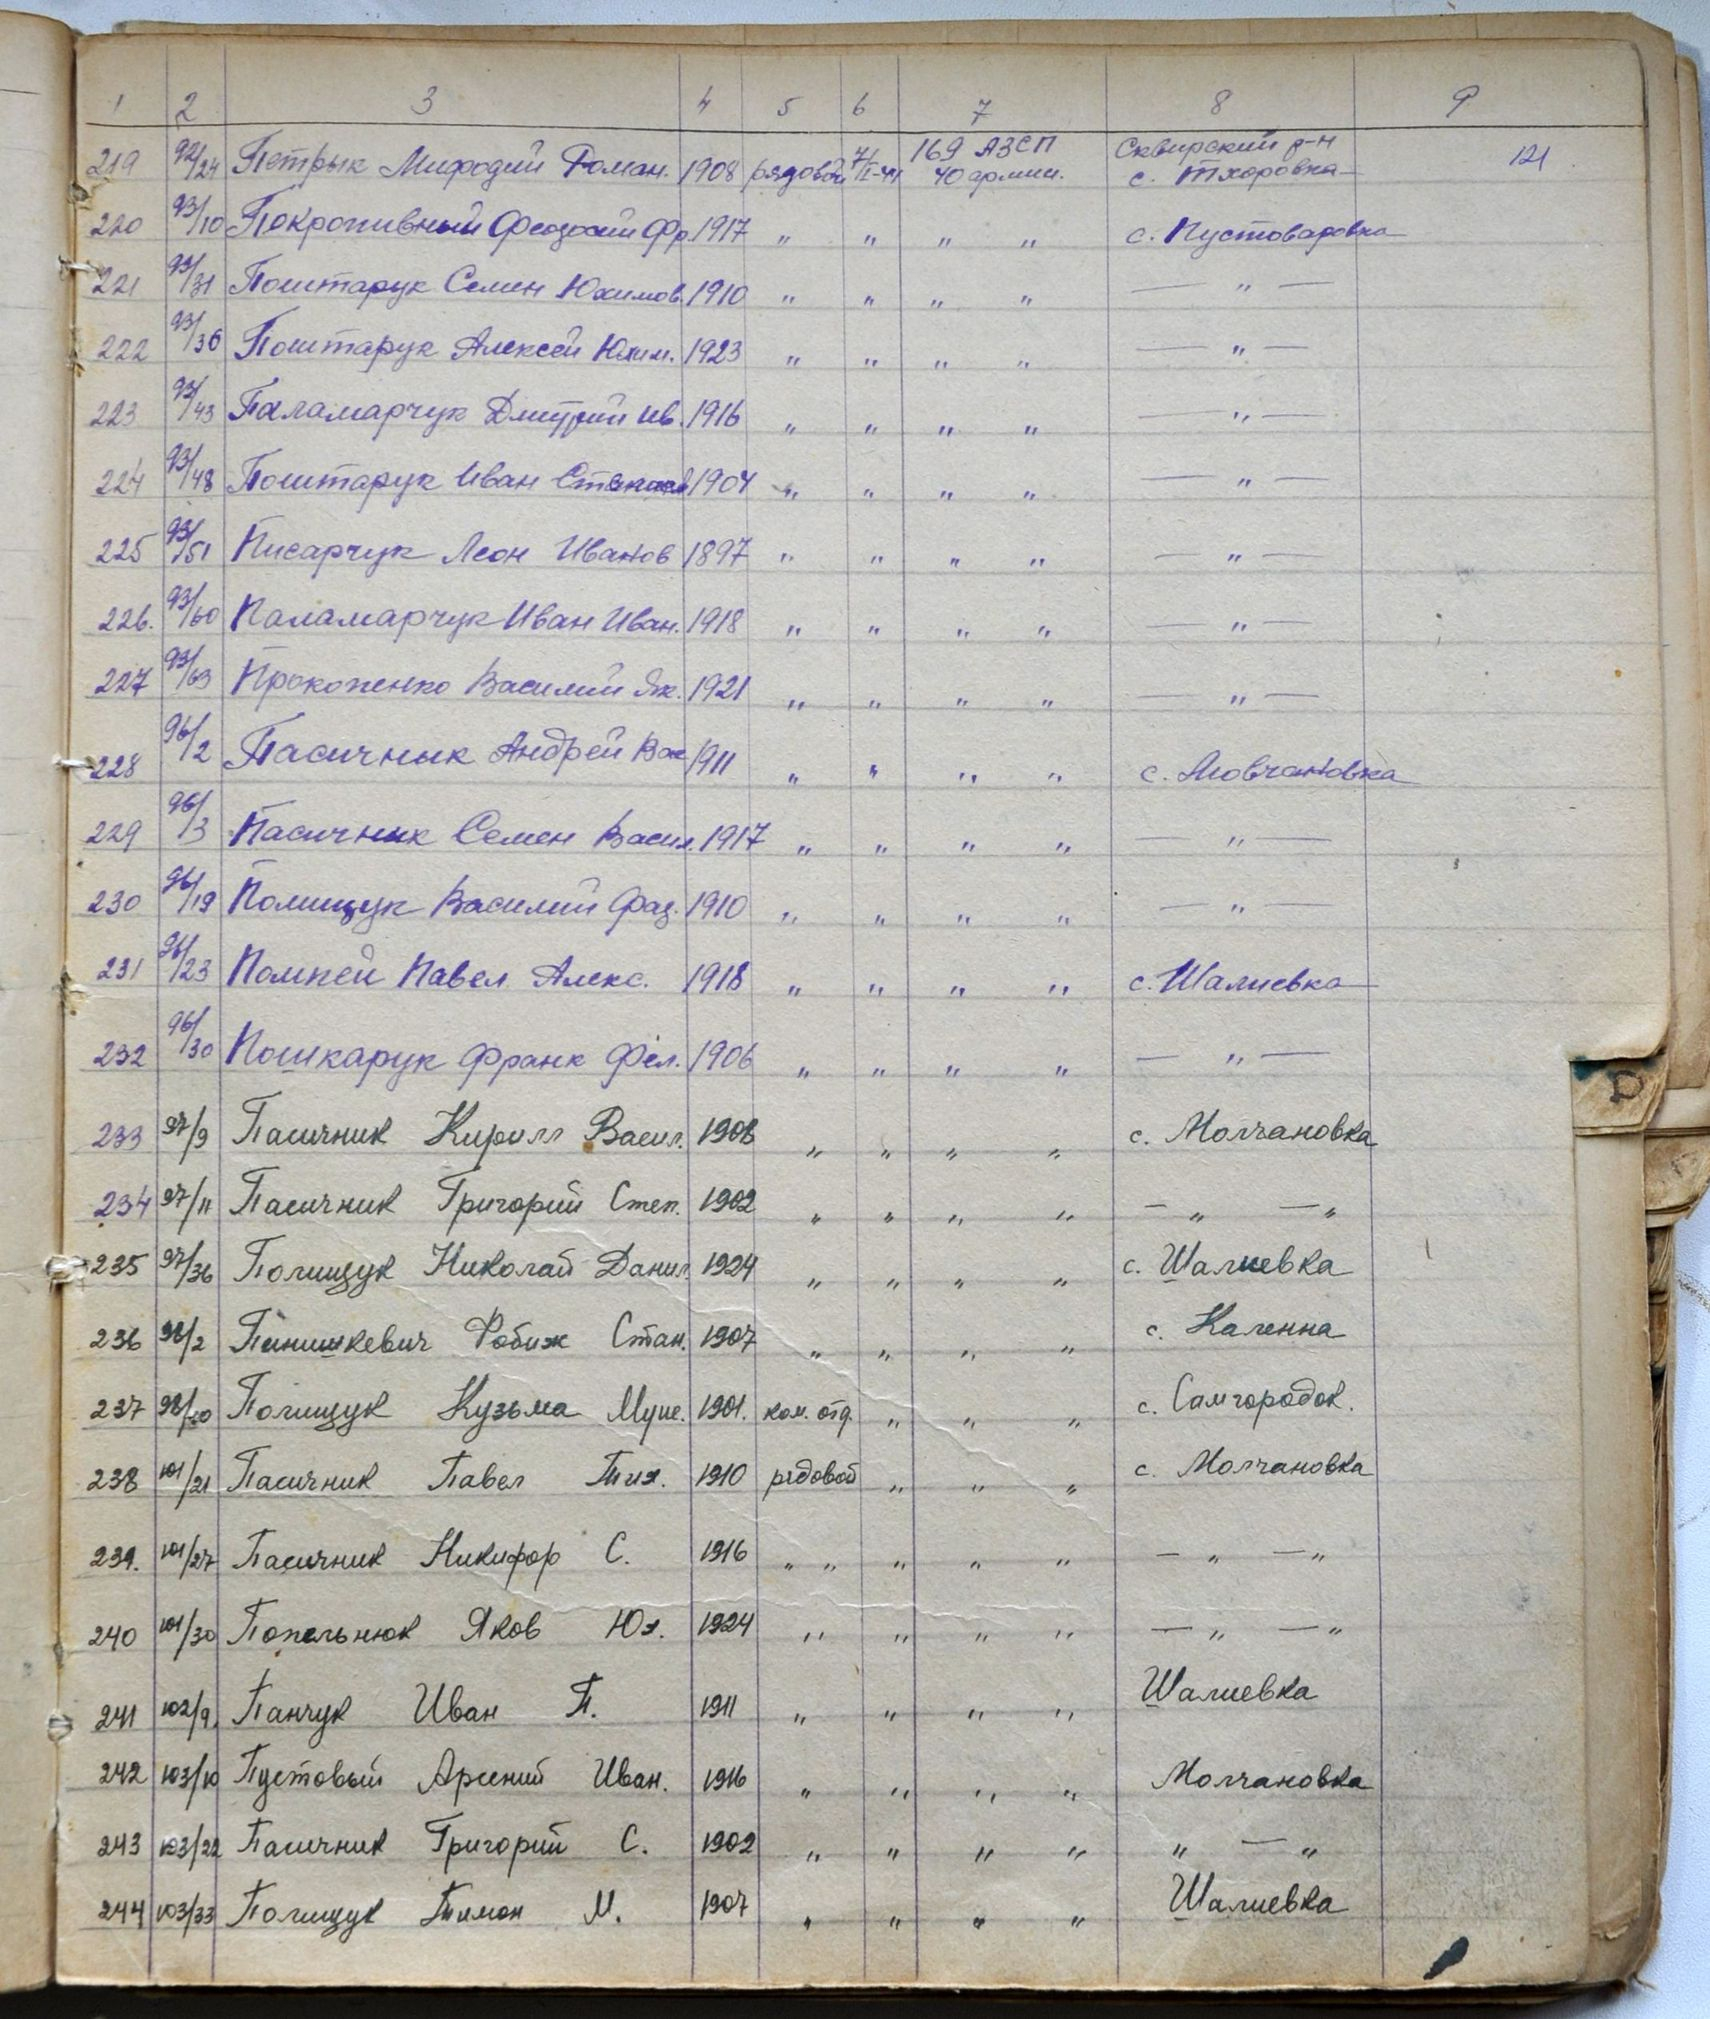 1 2 3 4 5 6 7 8 9
219 92/24 Петрык Мифодий Роман. 1908 рядовой 7/I-44 169 АЗСП 40 армии. Сквирский р-н с. Тхоровка 121
220 93/10 Покропивный Феодосий Фр. 1917 " " " " с. Пустоваровка
221 93/31 Поштарук Семен Юхимов. 1910 " " " " — " —
222 93/36 Поштарук Алексей Юхим. 1923 " " " " — " —
223 93/43 Паламарчук Дмитрий Ив. 1916 " " " " — " —
224 93/48 Поштарук Иван 1904 " " " " — " —
225 93/51 Писарчук Леон Иванов 1897 " " " " — " —
226. 93/60 Паламарчук Иван Иван. 1918 " " " " — " —
227 93/63 Прокопенко Василий Як. 1921 " " " " — " —
228 96/2 Пасичнык Андрей Вас 1911 " " " " с. Мовчановка
229 96/3 Пасичник Семен Васил. 1917 " " " " — " —
230 96/19 Полищук Василий Фад. 1910 " " " " — " —
231 96/23 Помпей Павел Алекс. 1918 " " " " с. Шалиевка
232 96/30 Пошкарук Франк Філ. 1906 " " " " — " —
233 97/9 Пасичник Кирилл Васил. 1908 " " " " с. Молчановка
234 97/11 Пасичник Григорий Степ. 1902 " " " " — " — "
235 97/36 Полищук Николай Данил. 1924 " " " " с. Шалиевка
236 98/2 Пинишкевич Фабиж Стан. 1907 " " " " с. Каленна
237 98/20 Полищук Кузьма 1901. ком. отд. " " " с. Самгородок.
238 101/21 Пасичник Павел Тих. 1910 рядовой " " " с. Молчановка
239. 101/27 Пасичник Никифор С. 1916 " " " " " — " — "
240 101/30 Попельнюк Яков Юх. 1924 " " " " — " — "
241 102/9. Панчук Иван П. 1911 " " " " Шалиевка
242 103/10 Пустовый Арсений Иван. 1916 " " " " Молчановка
243 103/22 Пасичник Григорий С. 1902 " " " " " — "
244 103/33 Полищук Тимон М. 1907 " " " " Шалиевка
Р